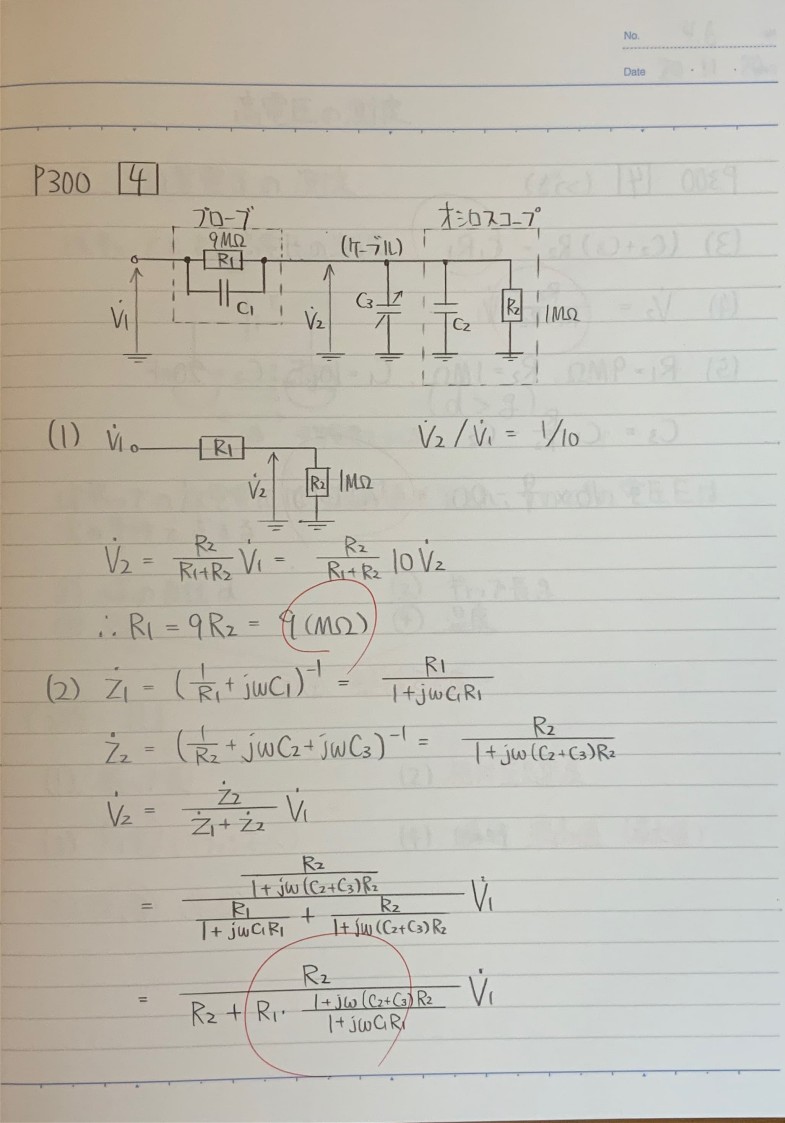 No.
Date
P300 4
プローブ
オシロスコープ
9MΩ
(ケーブル)
R1
C1
V̇1
V̇2
C3
C2
R2
1MΩ
(1) V̇1 R1 V̇2 / V̇1 = 1/10
V̇2 R2 1MΩ
V̇2 = R2/(R1+R2) V̇1 = R2/(R1+R2) 10V̇2
∴ R1 = 9R2 = 9 (MΩ)
(2) Ż1 = (1/R1 + jωC1)^-1 = R1/(1+jωC1R1)
Ż2 = (1/R2 + jωC2 + jωC3)^-1 = R2/(1+jω(C2+C3)R2)
V̇2 = Ż2/(Ż1+Ż2) V̇1
= (R2/(1+jω(C2+C3)R2))/(R1/(1+jωC1R1) + R2/(1+jω(C2+C3)R2)) V̇1
= R2/(R2 + R1・(1+jω(C2+C3)R2)/(1+jωC1R1)) V̇1